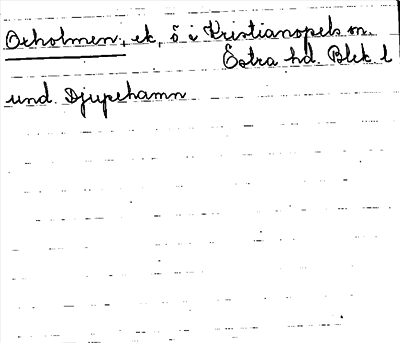 Oxholmen, ek, ö i Kristianopels sn.
Östra hd. Blek l
und. Djupehamn